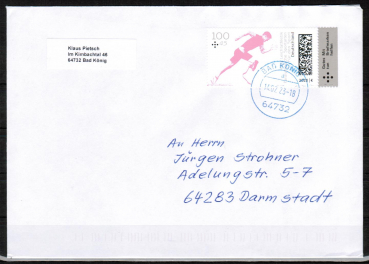 Klaus Pietsch
Im Kimbachtal 48
64732 Bad König
100
BAD KÖNIG
64732
An Herrn
Jürgen Strohner
Adelungstr. 5-7
64283 Darmstadt